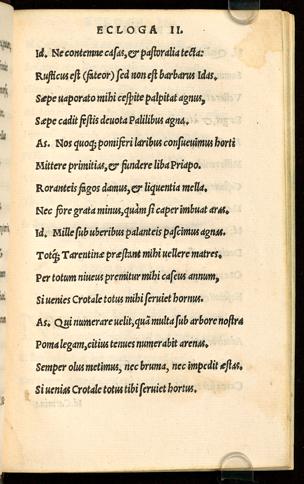 ECLOGA II.
Id. Ne contemne casas, & pastoralia tecta:
Rusticus est (fateor) sed non est barbarus Idas.
Sæpe uaporato mihi cespite palpitat agnus,
Sæpe cadit festis deuota Palilibus agna.
As. Nos quoq; pomiferi laribus consueuimus horti
Mittere primitias, & fundere liba Priapo.
Rorantesis fagos damus, & liquentia mella.
Nec fore grata minus, quàm si caper imbuat aras.
Id. Mille sub uberibus palanteis pascimus agnas.
Totq́; Tarentinæ præstant mihi uellere matres.
Per totum niueus premitur mihi caseus annum,
Si uenies Crotale totus mihi seruiet hornus.
As. Qui numerare uelit, quã multa sub arbore nostra
Poma legam, citius tenues numerabit arenas.
Semper olus metimus, nec bruma, nec impedit æstas.
Si uenias Crotale totus tibi seruiet hortus.